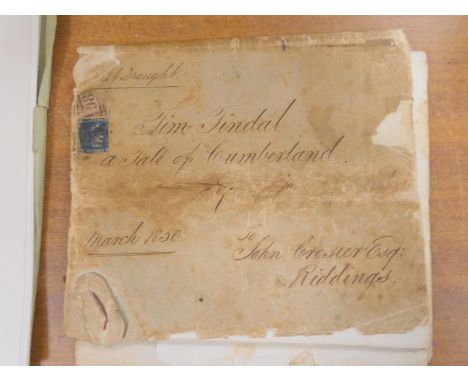 Draught.
Tim Tindal
a Tale of Cumberland.
March 1850
to
John Crosier Esq:
Riddings.